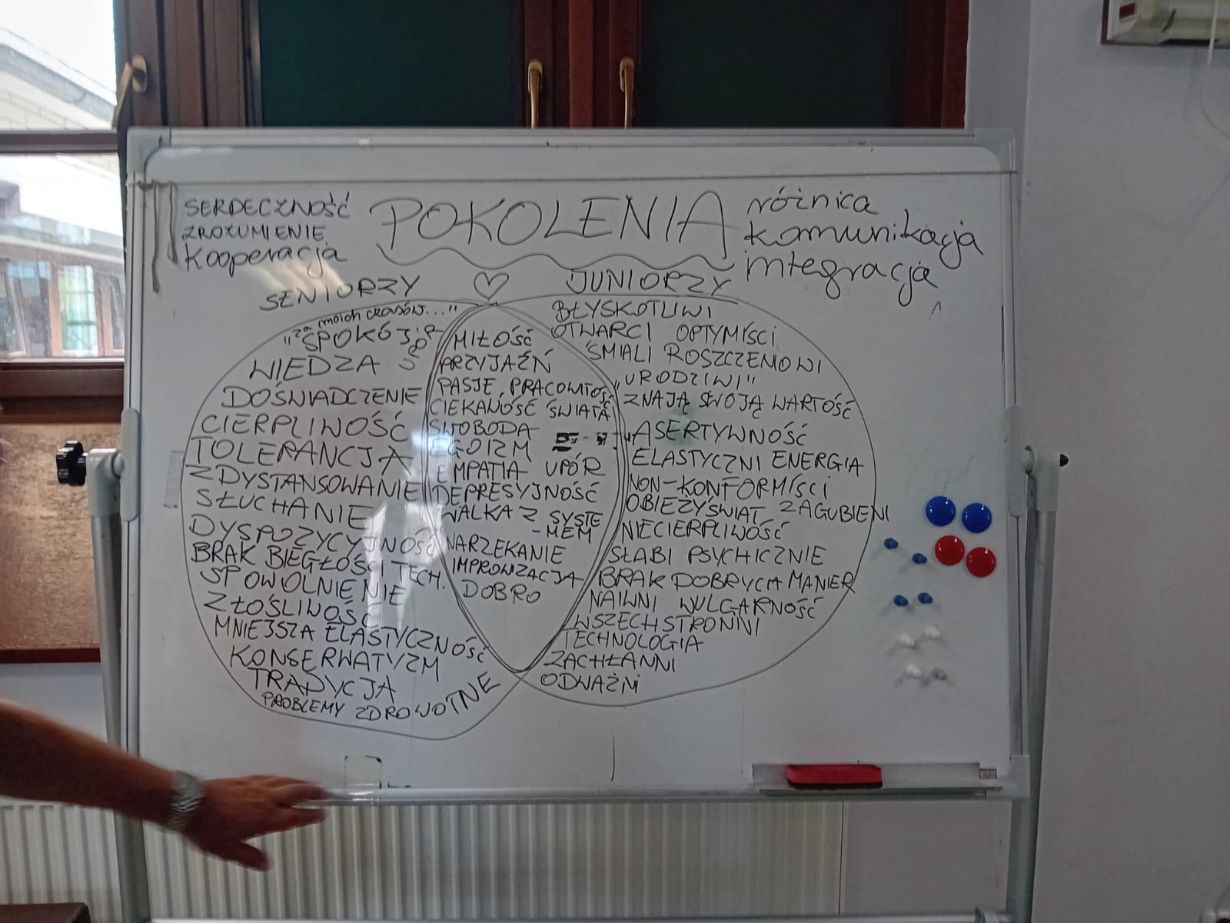 SERDECZNOŚĆ
ZROZUMIENIE
Kooperacja
POKOLENIA
różnica
komunikacja
integracja
SENIORZY
JUNIORZY
"za moich czasów..."
SPOKÓJ
WIEDZA
DOŚWIADCZENIE
CIERPLIWOŚĆ
TOLERANCJA
ZDYSTANSOWANIE
SŁUCHANIE
DYSPOZYCYJNOŚĆ
BRAK BIEGŁOŚCI TECH.
SPOWOLNIENIE
ZŁOŚLIWOŚĆ
MNIEJSZA ELASTYCZNOŚĆ
KONSERWATYZM
TRADYCJA
PROBLEMY ZDROWOTNE
MIŁOŚĆ
PRZYJAŹŃ
PASJE, PRACOWITOŚĆ
CIEKAWOŚĆ ŚWIATA
SWOBODA
EGOIZM
EMPATIA UPÓR
DEPRESYJNOŚĆ
WALKA Z SYSTE
-MEM
NARZEKANIE
IMPROWIZACJA
DOBRO
BŁYSKOTLIWI
OTWARCI OPTYMIŚCI
ŚMIALI ROSZCZENIOWI
"URODZIWI"
ZNAJĄ SWOJĄ WARTOŚĆ
ASERTYWNOŚĆ
ELASTYCZNI ENERGIA
NON-KONFORMIŚCI
OBIEŻYŚWIAT ZAGUBIENI
NIECIERPLIWOŚĆ
SŁABI PSYCHICZNIE
BRAK DOBRYCH MANIER
NAIWNI WULGARNOŚĆ
WSZECHSTRONNI
TECHNOLOGIA
ZACHŁANNI
ODWAŻNI